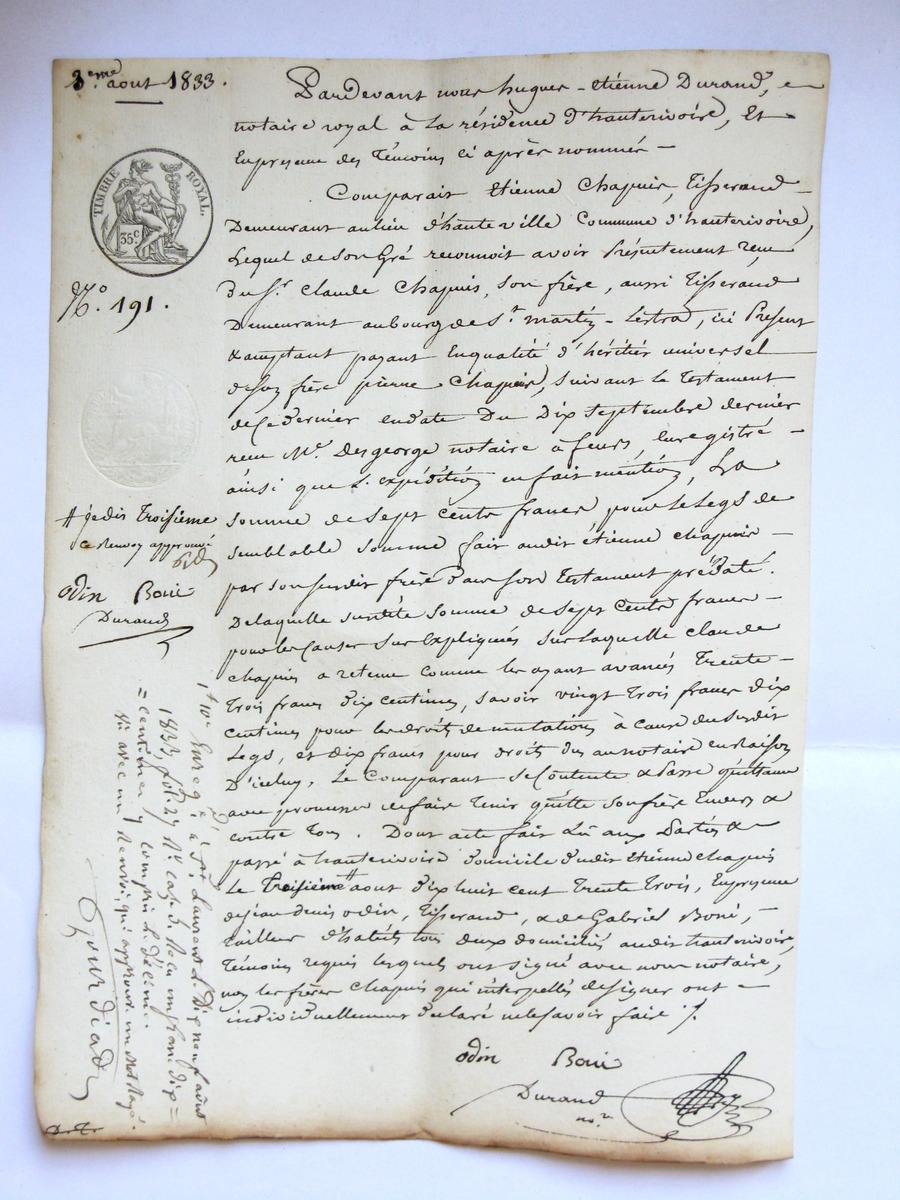 3.eme aout 1833.
TIMBRE ROYAL.
35.c
N.o 191.
Pardevant nous hugues - etiénne Durand,
notaire royal à La résidence d'hauterivoire, Et
Enpresence des Témoins ci après nommés -
Comparait Etienne Chapuis, Tisserand
Demeurant aulieu d'hauteville Commune d'hauterivoire,
Lequel de son Gré reconnoit avoir Présentement reçu
du S.r Claude Chapuis, son frère, aussi Tisserand
Demeurant au bourg de S.t martin - Lestra, ici Present
& acceptant payant Enqualité d'héritier universel
deson frère pierre Chapuis, suivant Le Testament
dece dernier endate Du Dix septembre dernier
recu M.e Desgeorge notaire à feurs, Enregistré -
ainsi que L'expédition enfait mention, La
somme de sept cents francs pour Le Legs de
semblable somme fait audit étienne chapuis -
par son susdit frère dans son Testament prédaté.
De laquelle susdite somme de sept cents francs -
pour les causes sus expliquées sur laquelle claude
chapuis a retenu comme les ayant avancés Trente -
Trois francs dix centimes, savoir vingt Trois francs dix
centimes pour les droits de mutation à cause du susdit
Legs, et dix francs pour droits dus au notaire en Raison
D'icelui, Le Comparant se Contente & Passe quittance
avec promesse de faire Tenir quitte son frère Envers &
contre Tous. Dont acte fait Lu aux Parties &
passé à hauterivoire domicile dudit Etienne chapuis
Le Troisième # aout dix huit cent Trente Trois, Enpresence
de jean denis odin, Tisserand, & de Gabriel Boni, -
Tailleur d'habits tous deux domiciliés audit hauterivoire,
Témoins requis lesquels ont signé avec nous notaire,
non les frères Chapuis qui interpellés de signer ont -
individuellement déclaré ne le savoir faire ./.
odin Boni
Durand
no.re
# je dis Troisième
ce Renvoi approuvé
odin Boni
Durand
Enreg.é à S.t Laurent L. Dix neuf août
1833, fol. 27 R.o Reçu un franc dix
centimes y compris L. déme.
avec un Renvoi, qui approuve un mot Rayé.